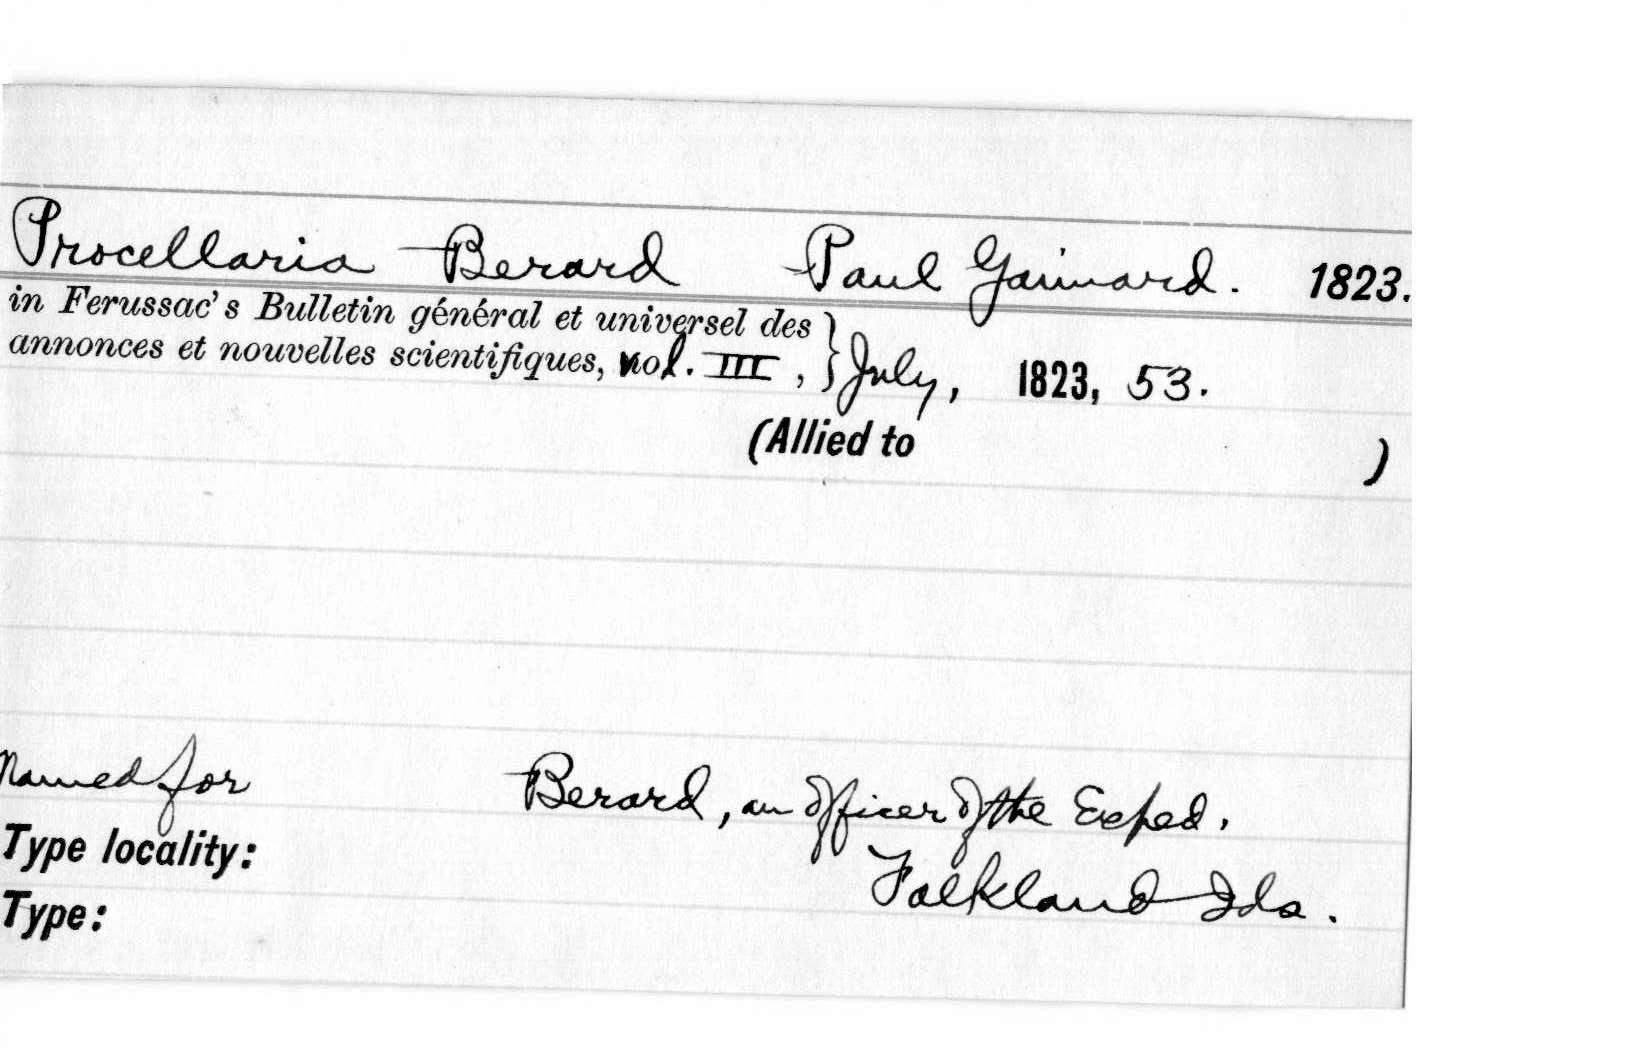 Procellaria Berard Paul Gaimard. 1823.
in Ferussac's Bulletin général et universel des
annonces et nouvelles scientifiques, vol. III, } July, 1823, 53.
(Allied to )
Named for Berard, an officer of the Exped.
Type locality: Falkland Ids.
Type: